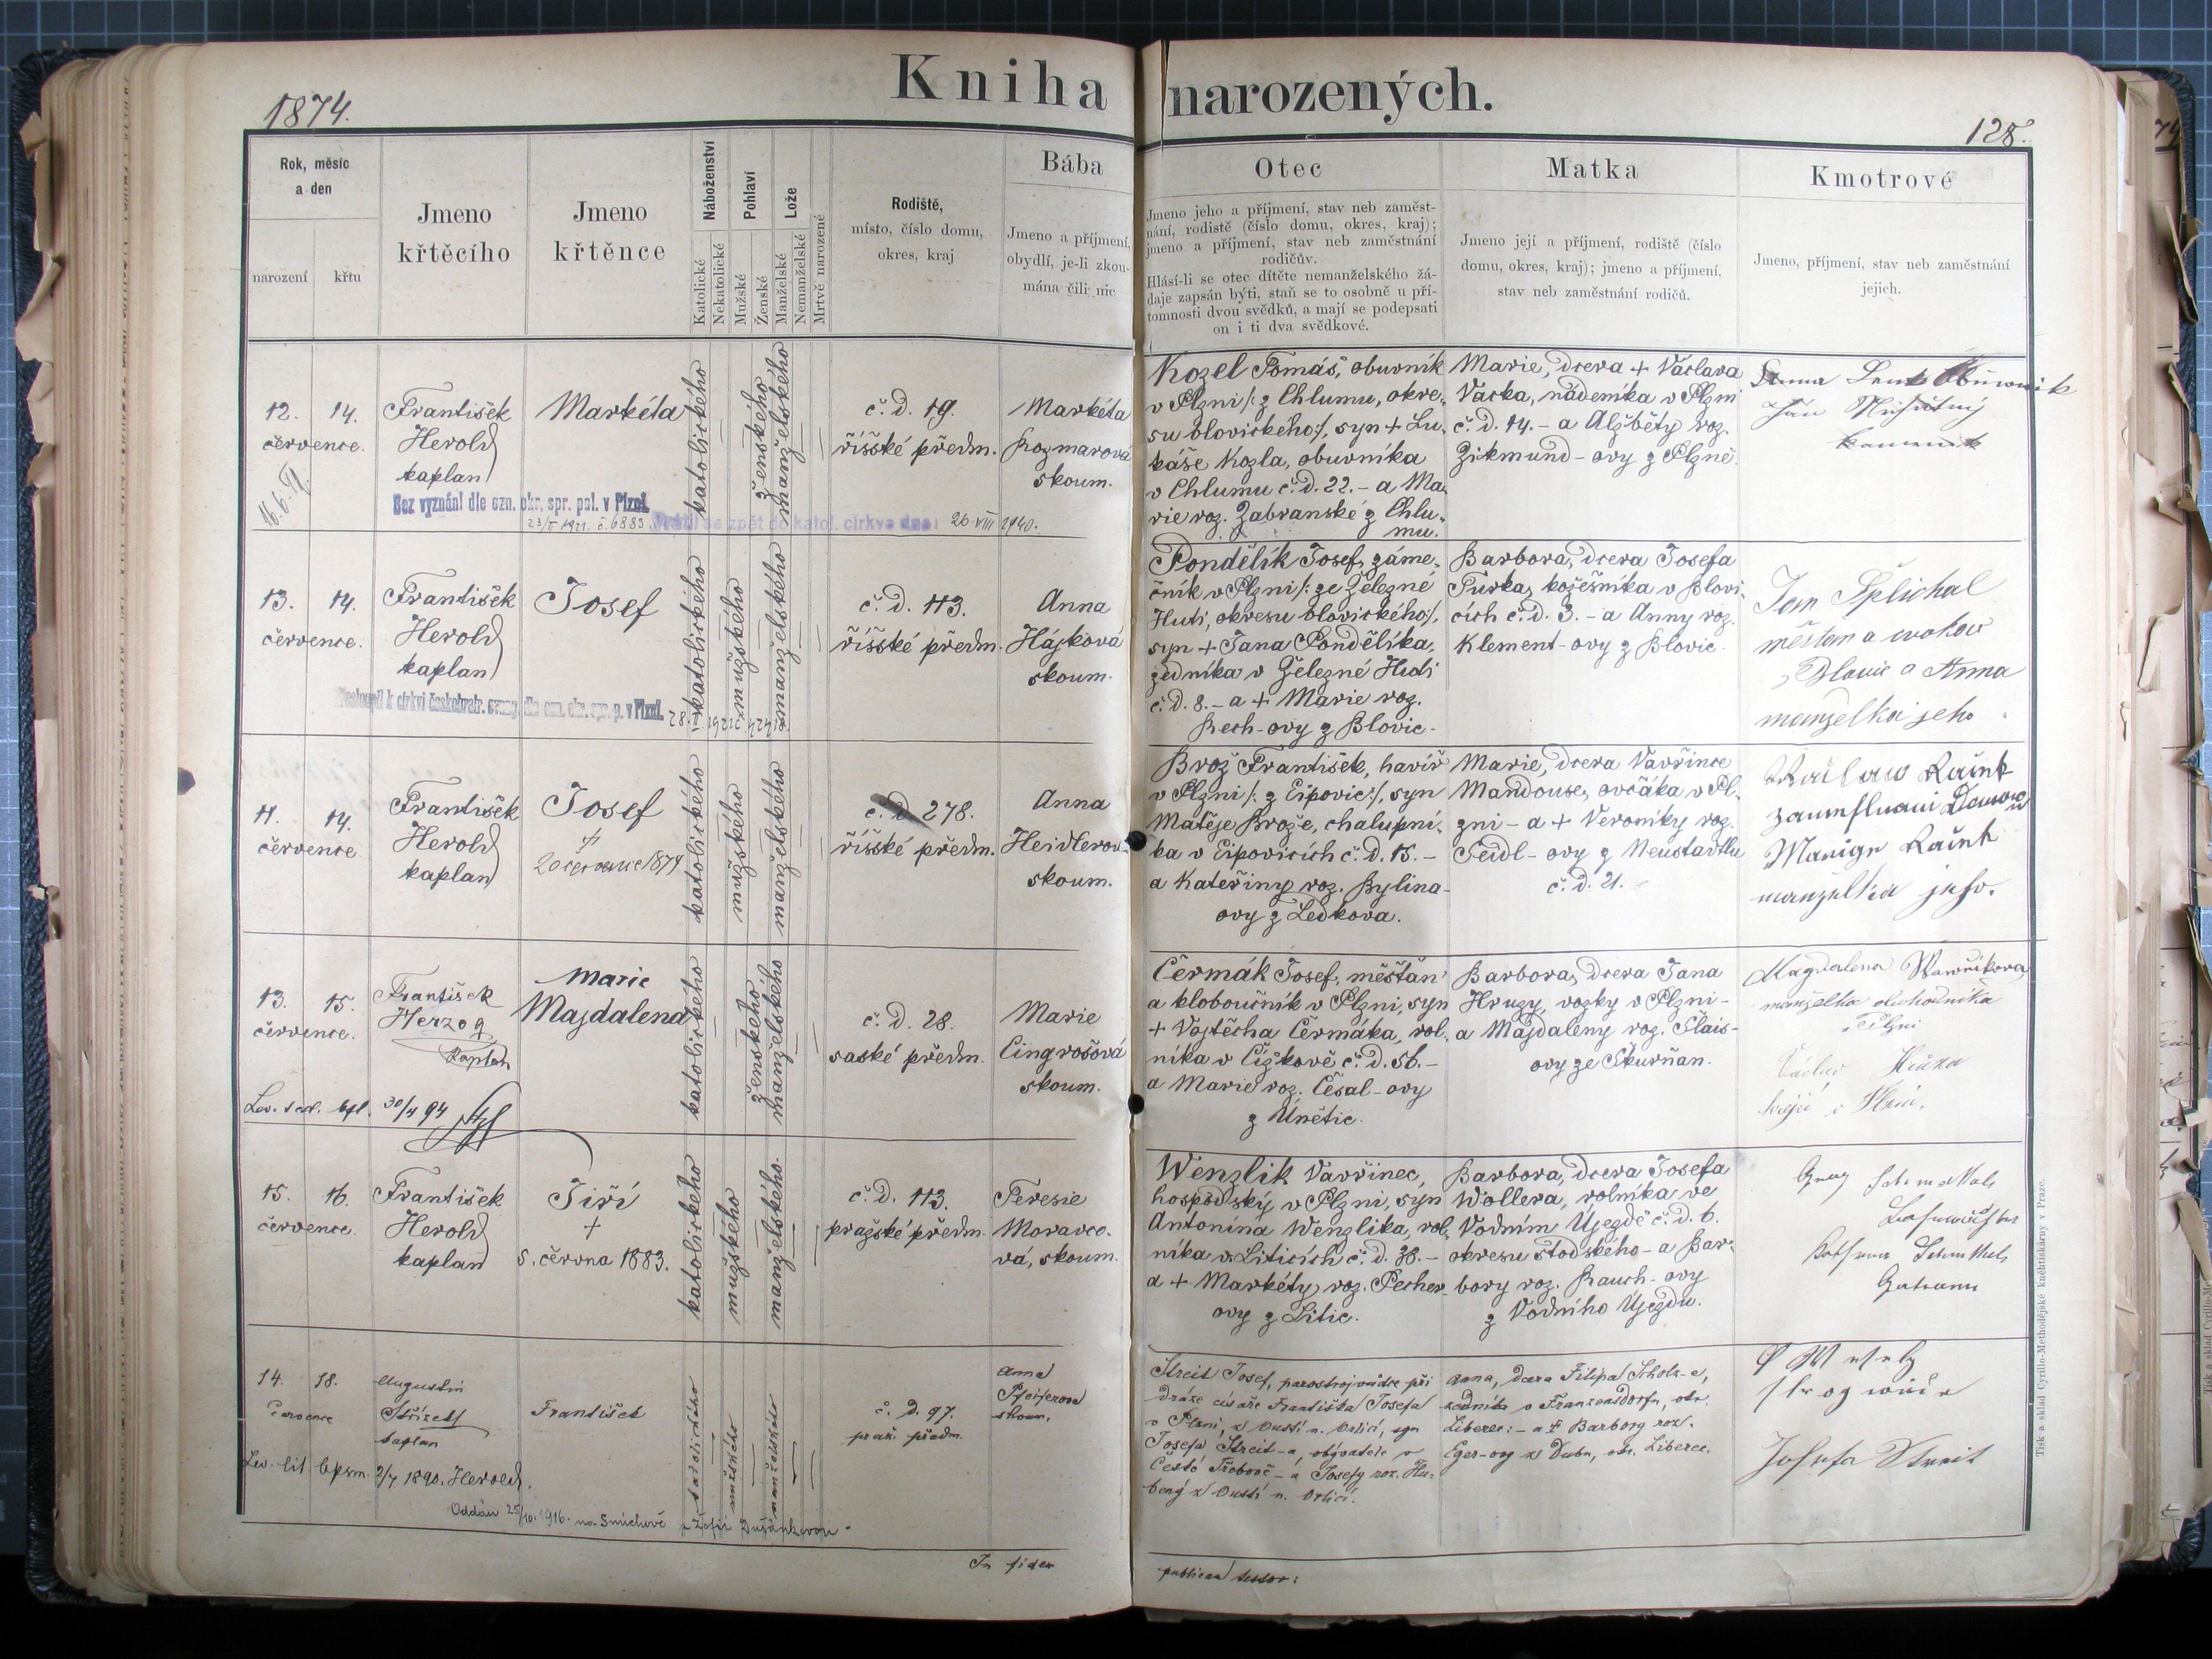 Kniha narozených.
1874.
128.
Rok, měsíc
a den
narození
křtu
Jmeno
křtěcího
Jmeno
křtěnce
Náboženství
Katolické
Nekatolické
Pohlaví
Mužské
Ženské
Lože
Manželské
Nemanželské
Mrtvě narozené
Rodiště,
místo, číslo domu,
okres, kraj
Bába
Jmeno a příjmení,
obydlí, je-li zkou-
mána čili nic
Otec
Jmeno jeho a příjmení, stav neb zaměst-
nání, rodiště (číslo domu, okres, kraj);
jmeno a příjmení, stav neb zaměstnání
rodičův.
Hlásí-li se otec dítěte nemanželského žá-
daje zapsán býti, staň se to osobně u pří-
tomnosti dvou svědků, a mají se podepsati
on i ti dva svědkové.
Matka
Jmeno její a příjmení, rodiště (číslo
domu, okres, kraj); jmeno a příjmení,
stav neb zaměstnání rodičů.
Kmotrové
Jmeno, příjmení, stav neb zaměstnání
jejich.
12. 14.
července.
František
Herold
kaplan
Markéta
katolického
ženského
manželského
č. d. 19.
říšské předm.
Markéta
Kozmarová
skoum.
Kozel Tomáš, obuvník
v Plzni /: z Chlumu, okre-
su blovického :/, syn + Lu-
káše Kozla, obuvníka
v Chlumu č. d. 22. - a Ma-
rie roz. Zabranské z Chlu-
mu.
Marie, dcera + Václava
Vacka, nádeníka v Plzni
č. d. 14. - a Alžběty roz.
Zikmund-ovy z Plzně.
Obuwnik
Jan
kamenik
Bez vyznání dle ozn. okr. spr. pol. v Plzni.
23/I 1921. č. 6883.
se zpět do katol. církve dne: 26. VIII 1940.
13. 14.
července.
František
Herold
kaplan
Josef
katolického
mužského
manželského
č. d. 113.
říšské předm.
Anna
Hájková
skoum.
Pondělík Josef, záme-
čník v Plzni /: ze Železné
Huti, okresu blovického :/,
syn + Jana Pondělíka,
zedníka v Železné Huti
č. d. 8. - a + Marie roz.
Rech-ovy z Blovic.
Barbora, dcera Josefa
Turka, kožešníka v Blovi-
cích č. d. 3. - a Anny roz.
Klement-ovy z Blovic.
Jan Šplichal
měšťan a
Blovic a Anna
manželka jeho
k církvi českobratr. evang. dle ozn. okr. spr. p. v Plzni.
11. 14.
července
František
Herold
kaplan
Josef
+
20 července 1874
katolického
mužského
manželského
č. d. 278.
říšské předm.
Anna
Heidlerov-
skoum.
Brož František, havíř
v Plzni /: z Ejpovic :/, syn
Matěje Brože, chalupní-
ka v Ejpovicích č. d. 15. -
a Kateřiny roz. Bylina-
ovy z Ledkova.
Marie, dcera Vavřince
Mandouse, ovčáka v Pl-
zni - a + Veroniky roz.
Seidl-ovy z Neustadtlu
č. d. 21.
manželka jeho.
13. 15.
července.
František
Herzog
Kaplan
Marie
Majdalena
katolického
ženského
manželského
č. d. 28.
saské předm.
Marie
Cingrošová
skoum.
Čermák Josef, měšťan
a kloboučník v Plzni, syn
+ Vojtěcha Čermáka, rol-
níka v Čížkově č. d. 56. -
a Marie roz. Česal-ovy
z Únětic.
Barbora, dcera Jana
Hruzy, vozky v Plzni -
a Majdaleny roz. Šlais-
ovy ze Škurňan.
Magdalena Wawřikova
manželka obchodníka
v Plzni
Václav Hrůza
krejčí v Plzni.
30/4 94
15. 16.
července.
František
Herold
kaplan
Jiří
+
5. června 1883.
katolického
mužského
manželského.
č. d. 113.
pražské předm.
Teresie
Moravco-
vá, skoum.
Wenzlik Vavřinec,
hospodský v Plzni, syn
Antonína Wenzlika, rol-
níka v Liticích č. d. 38. -
a + Markéty roz. Pecher-
ovy z Litic.
Barbora, dcera Josefa
Wöllera, rolníka ve
Vodním Újezdě č. d. 6.
okresu stodského - a Bar-
bory roz. Rauch-ovy
z Vodního Újezdu.
14. 18.
července
Augustin
Střízek
kaplan
František
katolického
mužského
manželského
č. D. 97.
praž. předm.
Anna
Pfeiferova
skoum.
Streit Josef, parostrojvůdce při
Dráze císaře Františka Josefa
v Plzni, z Oustí n. Orlicí, syn
Josefa Streit-a, obývatele v
České Třebové - a Josefy roz. Hu-
bený z Oustí n. Orlicí.
Anna, Dcera Filipa Scholz-e,
zedníka v Franzensdorfu, okr.
Liberec: - a + Barbory roz.
Eger-ovy z Dubu, okr. Liberec.
Josefa Streit
2/4 1890. Herold.
Oddán 25/10. 1916. na Smíchově s Žofií Dušánkovou.
In fidem
publicam
Tisk a sklad Cyrillo-Methodějské knihtiskárny v Praze.